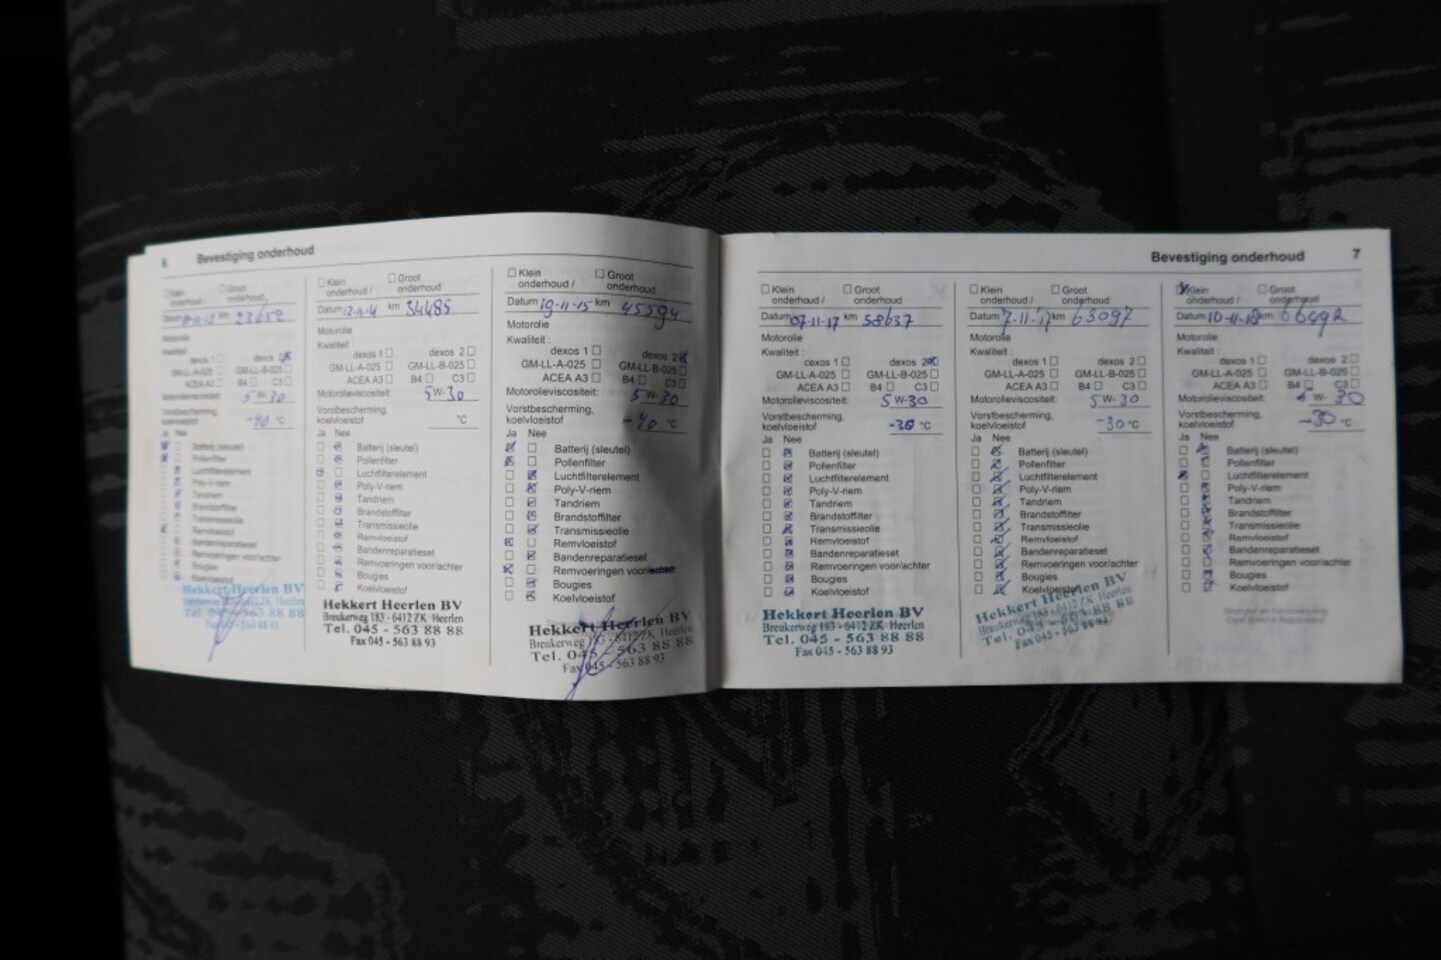 Bevestiging onderhoud
Klein onderhoud /
Groot onderhoud
Datum km 23652
Motorolie
Kwaliteit:
dexos 1 dexos 2
GM-LL-A-025 GM-LL-B-025
ACEA A3 B4 C3
Motorolieviscositeit: 5 W-30
Vorstbescherming, koelvloeistof -40 °C
Ja Nee
Batterij (sleutel)
Pollenfilter
Luchtfilterelement
Poly-V-riem
Tandriem
Brandstoffilter
Transmissieolie
Remvloeistof
Bandenreparatieset
Remvoeringen voor/achter
Bougies
Koelvloeistof
Hekkert Heerlen BV
Klein onderhoud /
Groot onderhoud
Datum 12-11-14 km 34485
Motorolie
Kwaliteit:
dexos 1 dexos 2
GM-LL-A-025 GM-LL-B-025
ACEA A3 B4 C3
Motorolieviscositeit: 5 W-30
Vorstbescherming, koelvloeistof °C
Ja Nee
Batterij (sleutel)
Pollenfilter
Luchtfilterelement
Poly-V-riem
Tandriem
Brandstoffilter
Transmissieolie
Remvloeistof
Bandenreparatieset
Remvoeringen voor/achter
Bougies
Koelvloeistof
Hekkert Heerlen BV
Breukerweg 183 - 6412 ZK Heerlen
Tel. 045 - 563 88 88
Fax 045 - 563 88 93
Klein onderhoud /
Groot onderhoud
Datum 19-11-15 km 45594
Motorolie
Kwaliteit :
dexos 1 dexos 2
GM-LL-A-025 GM-LL-B-025
ACEA A3 B4 C3
Motorolieviscositeit: 5 W-30
Vorstbescherming, koelvloeistof -40 °C
Ja Nee
Batterij (sleutel)
Pollenfilter
Luchtfilterelement
Poly-V-riem
Tandriem
Brandstoffilter
Transmissieolie
Remvloeistof
Bandenreparatieset
Remvoeringen voor/achter
Bougies
Koelvloeistof
Hekkert Heerlen BV
Breukerweg 183 - 6412 ZK Heerlen
Tel. 045 - 563 88 88
Fax 045 - 563 88 93
Bevestiging onderhoud 7
Klein onderhoud /
Groot onderhoud
Datum 07-11-17 km 58637
Motorolie
Kwaliteit :
dexos 1 dexos 2
GM-LL-A-025 GM-LL-B-025
ACEA A3 B4 C3
Motorolieviscositeit: 5 W-30
Vorstbescherming, koelvloeistof -30 °C
Ja Nee
Batterij (sleutel)
Pollenfilter
Luchtfilterelement
Poly-V-riem
Tandriem
Brandstoffilter
Transmissieolie
Remvloeistof
Bandenreparatieset
Remvoeringen voor/achter
Bougies
Koelvloeistof
Hekkert Heerlen BV
Breukerweg 183 - 6412 ZK Heerlen
Tel. 045 - 563 88 88
Fax 045 - 563 88 93
Klein onderhoud /
Groot onderhoud
Datum 7-11-17 km 63097
Motorolie
Kwaliteit :
dexos 1 dexos 2
GM-LL-A-025 GM-LL-B-025
ACEA A3 B4 C3
Motorolieviscositeit: 5 W-30
Vorstbescherming, koelvloeistof -30 °C
Ja Nee
Batterij (sleutel)
Pollenfilter
Luchtfilterelement
Poly-V-riem
Tandriem
Brandstoffilter
Transmissieolie
Remvloeistof
Bandenreparatieset
Remvoeringen voor/achter
Bougies
Koelvloeistof
Hekkert Heerlen BV
Breukerweg 183 - 6412 ZK Heerlen
Tel. 045 - 563 88 88
Fax 045 - 563 88 93
Klein onderhoud /
Groot onderhoud
Datum 10-11-18 km
Motorolie
Kwaliteit :
dexos 1 dexos 2
GM-LL-A-025 GM-LL-B-025
ACEA A3 B4 C3
Motorolieviscositeit: W- 30
Vorstbescherming, koelvloeistof -30 °C
Ja Nee
Batterij (sleutel)
Pollenfilter
Luchtfilterelement
Poly-V-riem
Tandriem
Brandstoffilter
Transmissieolie
Remvloeistof
Bandenreparatieset
Remvoeringen voor/achter
Bougies
Koelvloeistof